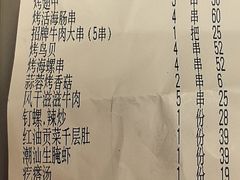 烤翅中 3 串 38
烤活海肠串 4 串 60
招牌牛肉大串（5串） 1 把 25
烤鸟贝 4 串 52
烤海螺串 4 串 52
蒜蓉烤香菇 2 串 6
风干滋滋牛肉 5 串 25
钉螺,辣炒 1 份 28
红油贡菜千层肚 1 份 39
潮汕生腌虾 1 份 39
疙瘩汤 1 份 19